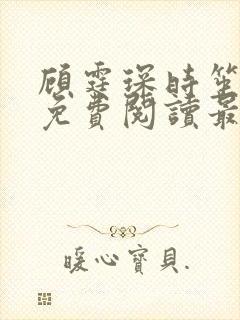 顾霆琛時笙
免費閱讀最
暖心寶貝.